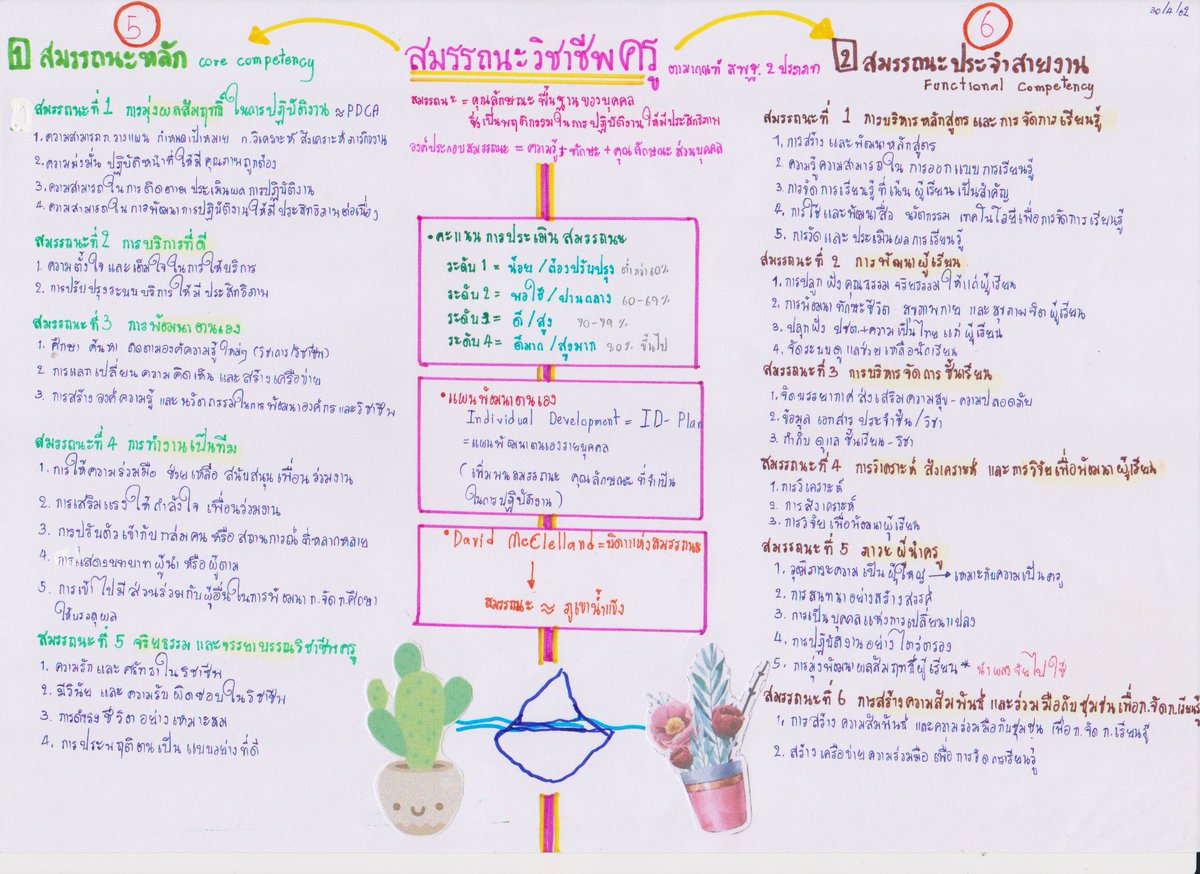 30/4/62
5
1 สมรรถนะหลัก core competency
สมรรถนะที่ 1 การมุ่งผลสัมฤทธิ์ในการปฏิบัติงาน ≈ PDCA
1. ความสามารถวางแผน กำหนดเป้าหมาย ก.วิเคราะห์ สังเคราะห์ ภารกิจงาน
2. ความมุ่งมั่น ปฏิบัติหน้าที่ให้มีคุณภาพถูกต้อง
3. ความสามารถในการติดตาม ประเมินผลการปฏิบัติงาน
4. ความสามารถในการพัฒนาการปฏิบัติงานให้มีประสิทธิภาพต่อเนื่อง
สมรรถนะที่ 2 การบริการที่ดี
1. ความตั้งใจ และเต็มใจในการให้บริการ
2. การปรับปรุงระบบบริการให้มีประสิทธิภาพ
สมรรถนะที่ 3 การพัฒนาตนเอง
1. ศึกษา ค้นหา ติดตามองค์ความรู้ใหม่ๆ (วิชาการ/วิชาชีพ)
2. การแลกเปลี่ยนความคิดเห็น และสร้างเครือข่าย
3. การสร้างองค์ความรู้ และนวัตกรรมในการพัฒนาองค์กรและวิชาชีพ
สมรรถนะที่ 4 การทำงานเป็นทีม
1. การให้ความร่วมมือ ช่วยเหลือ สนับสนุนเพื่อนร่วมงาน
2. การเสริมแรงให้กำลังใจ เพื่อนร่วมงาน
3. การปรับตัวเข้ากับกลุ่มคน หรือ สถานการณ์ที่หลากหลาย
4. การแสดงบทบาทผู้นำ หรือผู้ตาม
5. การเข้าไปมีส่วนร่วมกับผู้อื่นในการพัฒนา ก.จัด ก.ศึกษา
ให้บรรลุผล
สมรรถนะที่ 5 จริยธรรม และจรรยาบรรณวิชาชีพครู
1. ความรักและศรัทธาในวิชาชีพ
2. มีวินัย และความรับผิดชอบในวิชาชีพ
3. การดำรงชีวิตอย่างเหมาะสม
4. การประพฤติตนเป็นแบบอย่างที่ดี
สมรรถนะวิชาชีพครู ตามเกณฑ์ สพฐ. 2 ประเภท
สมรรถนะ = คุณลักษณะพื้นฐานของบุคคล
ซึ่งเป็นพฤติกรรมในการปฏิบัติงานให้มีประสิทธิภาพ
องค์ประกอบสมรรถนะ = ความรู้ + ทักษะ + คุณลักษณะส่วนบุคคล
• คะแนนการประเมินสมรรถนะ
ระดับ 1 = น้อย/ต้องปรับปรุง ต่ำกว่า 60%
ระดับ 2 = พอใช้/ปานกลาง 60-69%
ระดับ 3 = ดี/สูง 70-79%
ระดับ 4 = ดีมาก/สูงมาก 80% ขึ้นไป
• แผนพัฒนาตนเอง
Individual Development = ID-Plan
= แผนพัฒนาตนเองรายบุคคล
(เพิ่มพูนสมรรถนะ คุณลักษณะ ที่จำเป็น
ในการปฏิบัติงาน)
• David McClelland = บิดาแห่งสมรรถนะ
สมรรถนะ ≈ ภูเขาน้ำแข็ง
6
2 สมรรถนะประจำสายงาน
Functional Competency
สมรรถนะที่ 1 การบริหารหลักสูตรและการจัดการเรียนรู้
1. การสร้างและพัฒนาหลักสูตร
2. ความรู้ความสามารถในการออกแบบการเรียนรู้
3. การจัดการเรียนรู้ที่เน้นผู้เรียนเป็นสำคัญ
4. การใช้และพัฒนาสื่อ นวัตกรรม เทคโนโลยีเพื่อการจัดการเรียนรู้
5. การวัดและประเมินผลการเรียนรู้
สมรรถนะที่ 2 การพัฒนาผู้เรียน
1. การปลูกฝังคุณธรรม จริยธรรมให้แก่ผู้เรียน
2. การพัฒนาทักษะชีวิต สุขภาพกาย และสุขภาพจิตผู้เรียน
3. ปลูกฝัง ปชต.+ความเป็นไทยแก่ผู้เรียน
4. จัดระบบดูแลช่วยเหลือนักเรียน
สมรรถนะที่ 3 การบริหารจัดการชั้นเรียน
1. จัดบรรยากาศส่งเสริมความสุข-ความปลอดภัย
2. ข้อมูล เอกสาร ประจำชั้น/วิชา
3. กำกับ ดูแล ชั้นเรียน-วิชา
สมรรถนะที่ 4 การวิเคราะห์ สังเคราะห์ และการวิจัยเพื่อพัฒนาผู้เรียน
1. การวิเคราะห์
2. การสังเคราะห์
3. การวิจัยเพื่อพัฒนาผู้เรียน
สมรรถนะที่ 5 ภาวะผู้นำครู
1. วุฒิภาวะความเป็นผู้ใหญ่ → เหมาะกับความเป็นครู
2. การสนทนาอย่างสร้างสรรค์
3. การเป็นบุคคลแห่งการเปลี่ยนแปลง
4. การปฏิบัติงานอย่างไตร่ตรอง
5. การมุ่งพัฒนาผลสัมฤทธิ์ผู้เรียน * นำผลวิจัยไปใช้
สมรรถนะที่ 6 การสร้างความสัมพันธ์และร่วมมือกับชุมชนเพื่อ ก.จัด ก.เรียนรู้
1. การสร้างความสัมพันธ์ และความร่วมมือกับชุมชน เพื่อ ก.จัด ก.เรียนรู้
2. สร้างเครือข่ายความร่วมมือ เพื่อการจัดการเรียนรู้